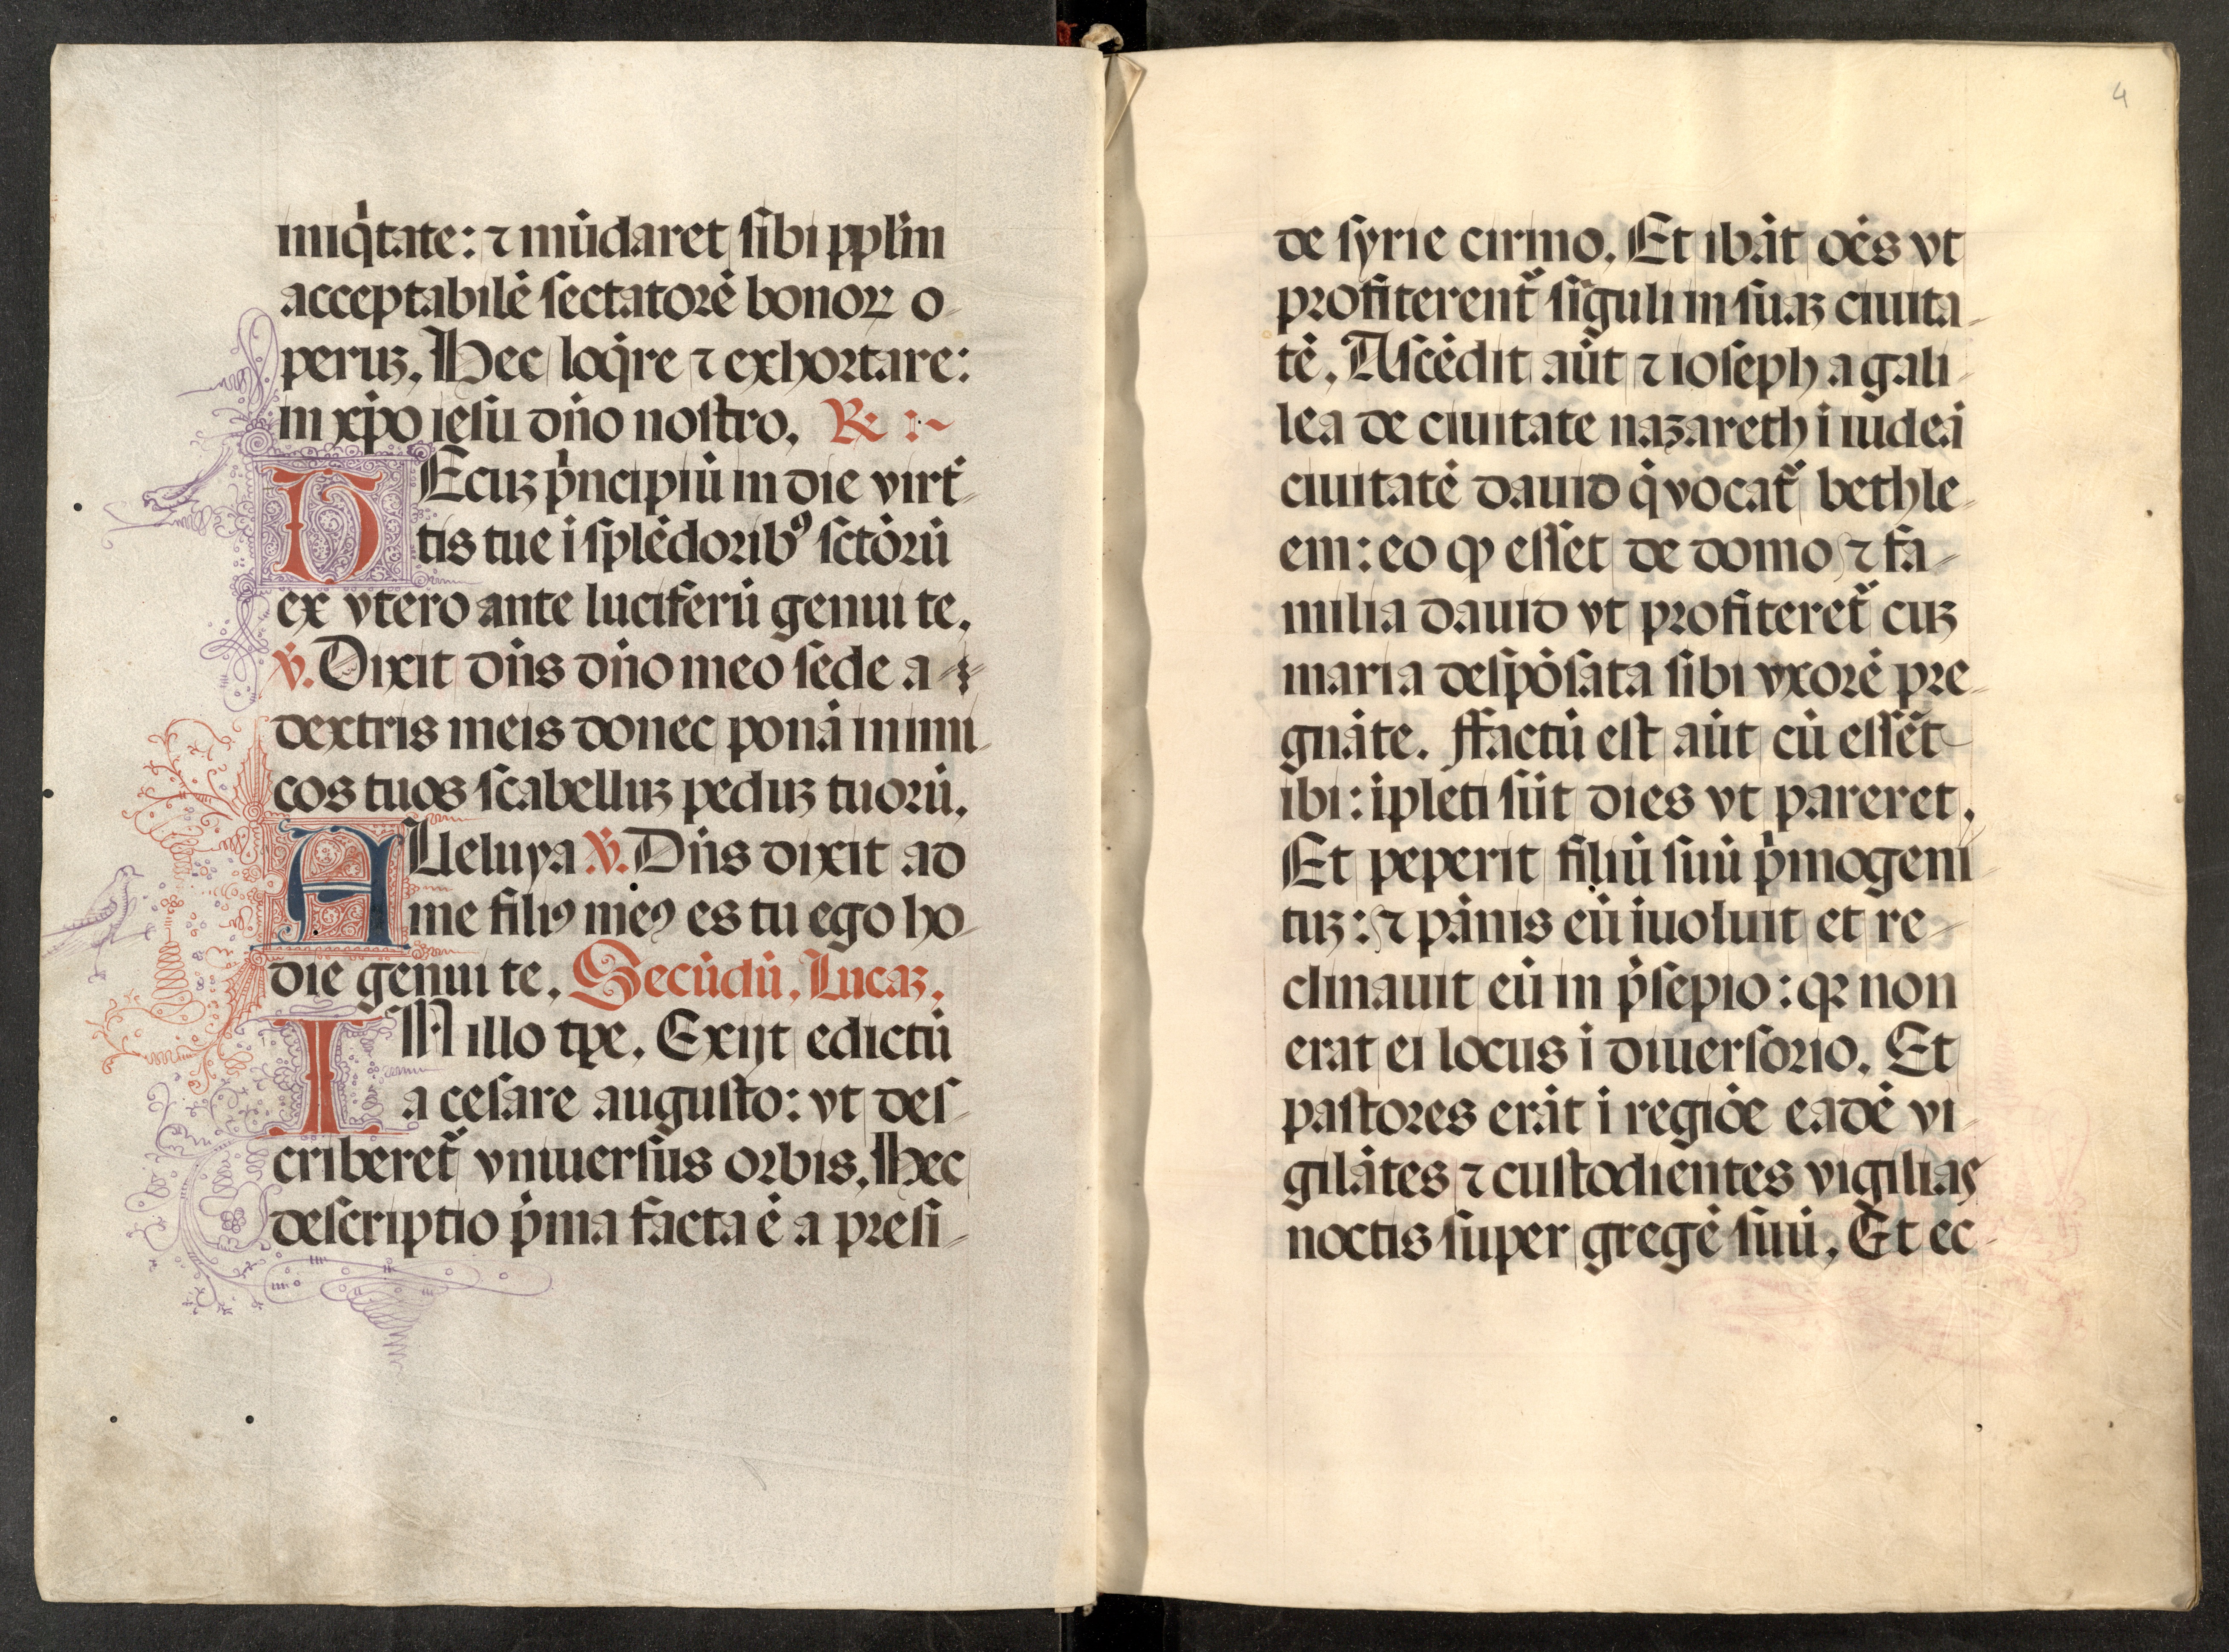 iniq̇tate: ⁊ mūdaret sibi pplm̄
acceptabilē sectatorē bonoꝝ o-
peruȝ. Hec loq̇re ⁊ exhortare:
in xp̄o iesu dn̄o nostro. ℞
DEcuȝ pͥncipiū in die virt̄-
tis tue ī splēdoribꝰ sctōrū
ex vtero ante luciferū genui te.
℣. Dixit dn̄s dn̄o meo sede a
dextris meis donec ponā inimi-
cos tuos scabelluȝ peduȝ tuorū.
ALleluya ℣. Dn̄s dixit ad
me filiꝯ meꝯ es tu ego ho-
die genui te. Secūdū. Lucaȝ.
IN illo tp̄e. Exijt edictū
a cesare augusto: vt des-
criberet᷑ vniuersus orbis. Hec
descriptio pͥma facta ē a presi-
4
de syrie cirino. Et ibāt oēs vt
profiterent᷑ sīguli in suaȝ ciuita-
tē. Ascēdit aūt ⁊ ioseph a gali-
lea de ciuitate nazareth ī iudeā
ciuitatē dauid q̇ vocat᷑ bethle-
em: eo ꝙ esset de domo ⁊ fa-
milia dauid vt profiteret᷑ cuȝ
maria despōsata sibi vxorē pre-
gnāte. ffactū est aūt cū essēt
ibi: īpleti sūt dies vt pareret.
Et peperit filiū suū pͥmogeni
tuȝ: ⁊ pānis eū īuoluit et re-
clinauit eū in p̄sepio: qꝛ non
erat ei locus ī diuersorio. Et
pastores erāt ī regiōe eadē vi-
gilātes ⁊ custodientes vigilias
noctis super gregē suū. Et ec-